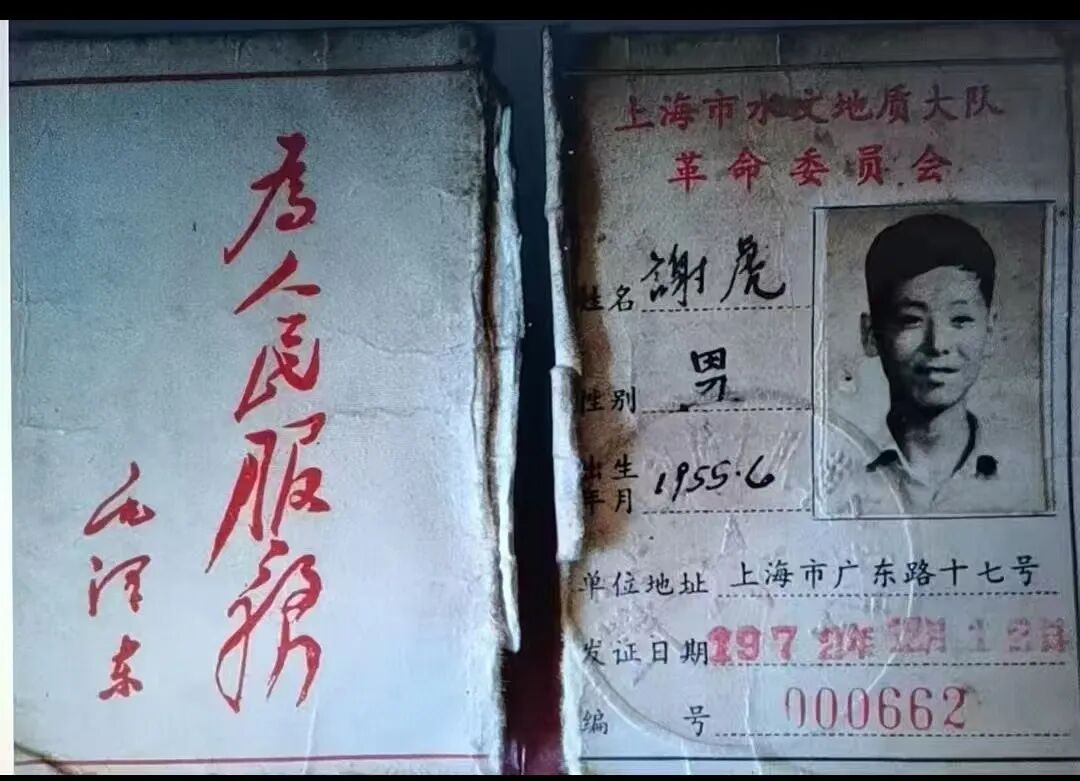 为人民服务
毛泽东
上海市水文地质大队
革命委员会
姓名 謝虎
性别 男
出生年月 1955.6
单位地址 上海市广东路十七号
发证日期 1972年12月12日
编号 000662